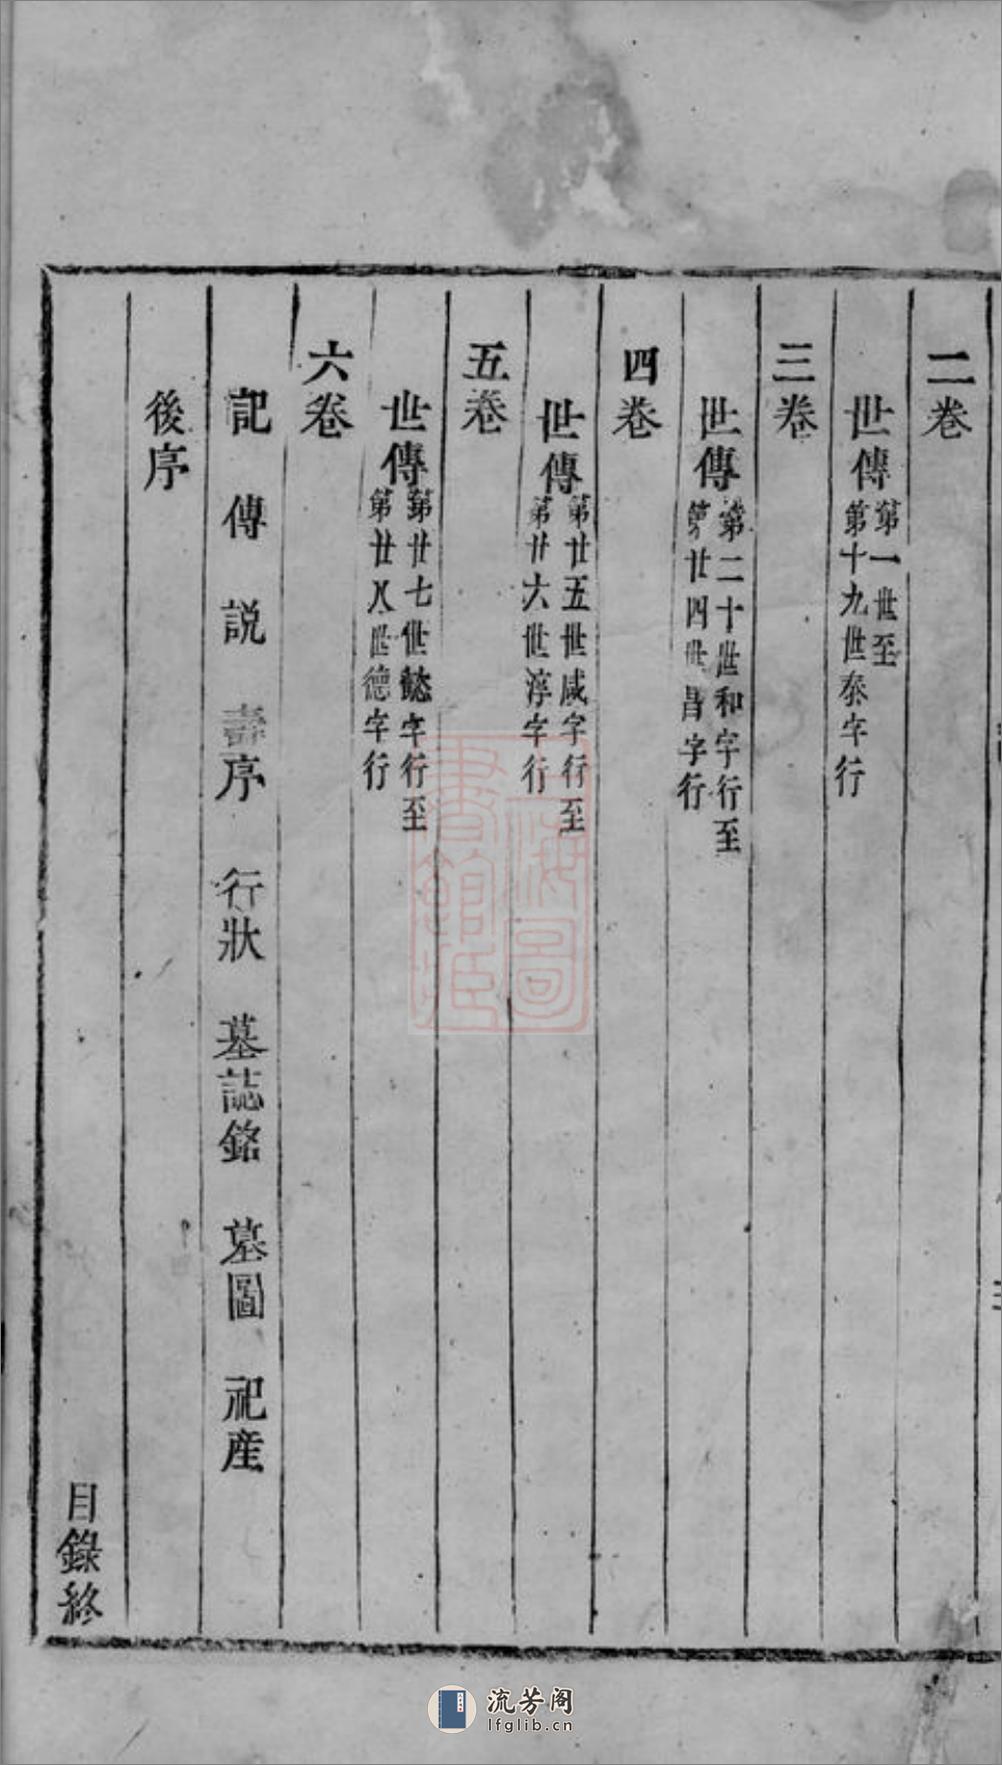 二卷
世傳第一世至
第十九世泰字行
三卷
世傳第二十世和字行至
第廿四世昌字行
四卷
世傳第廿五世咸字行至
第廿六世淳字行
五卷
世傳第廿七世懿字行至
第廿八世德字行
六卷
記 傳 説 壽序 行狀 墓誌銘 墓圖 祀産
後序
目錄終
上海圖
書館藏
流芳阁
lfglib.cn